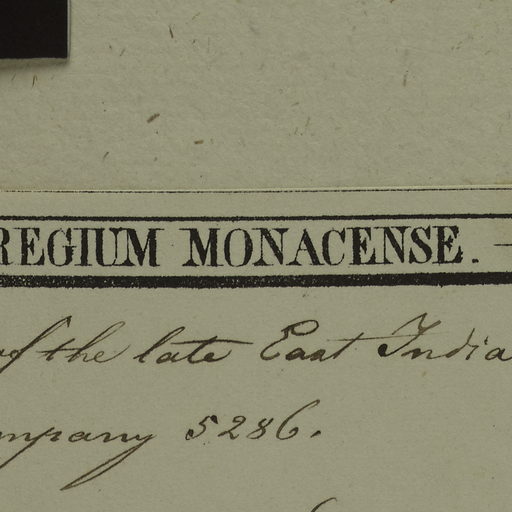 REGIUM MONACENSE. —
of the late East India
mpany 5286.